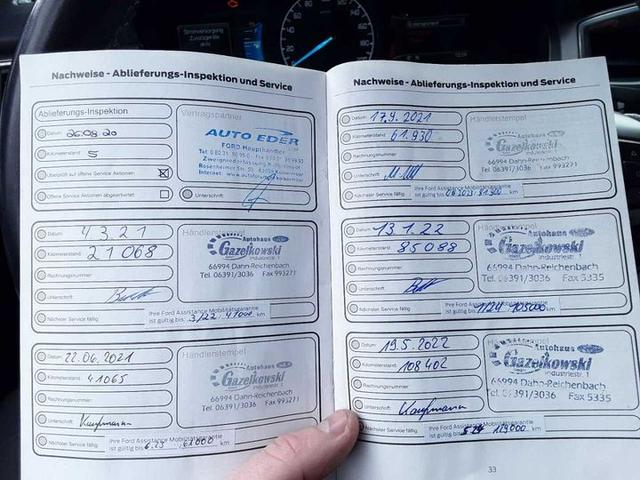 Nachweise - Ablieferungs-Inspektion und Service
Ablieferungs-Inspektion
Datum 26.08.20
Kilometerstand 5
Überprüft auf offene Service Aktionen
Offene Service Aktionen abgearbeitet
Vertragspartner
AUTO EDER
FORD-Haupthändler
Unterschrift
Datum 4.3.21
Kilometerstand 21068
Rechnungsnummer
Unterschrift
Nächster Service fällig
Ihre Ford Assistance Mobilitätsgarantie
ist gültig bis 3/22 41000 km
Autohaus
Gazelkowski
Industriestr. 1
66994 Dahn-Reichenbach
Tel. 06391/3036 Fax 993271
Datum 22.06.2021
Kilometerstand 41065
Rechnungsnummer
Unterschrift Kaufmann
Nächster Service fällig
Ihre Ford Assistance Mobilitätsgarantie
ist gültig bis 6.23 61000 km
Händlerstempel
Autohaus
Gazelkowski
Industriestr. 1
66994 Dahn-Reichenbach
Tel. 06391/3036 Fax 993271
Nachweise - Ablieferungs-Inspektion und Service
Datum 17.9.2021
Kilometerstand 61.930
Rechnungsnummer
Unterschrift
Nächster Service fällig
Ihre Ford Assistance Mobilitätsgarantie
ist gültig bis km
Händlerstempel
66994 Dahn-Reichenbach
Tel. 06391/3036 Fax 993271
Datum 13.1.22
Kilometerstand 85088
Rechnungsnummer
Unterschrift
Nächster Service fällig
Ihre Ford Assistance Mobilitätsgarantie
ist gültig bis 1/24 105000 km
Autohaus
Gazelkowski
Industriestr. 1
66994 Dahn-Reichenbach
Tel. 06391/3036 Fax 5335
Datum 19.5.2022
Kilometerstand 108402
Rechnungsnummer
Unterschrift Kaufmann
Nächster Service fällig
Ihre Ford Assistance Mobilitätsgarantie
ist gültig bis 5.24 km
Autohaus
Gazelkowski
Industriestr. 1
66994 Dahn-Reichenbach
Tel. 06391/3036 Fax 5335
33